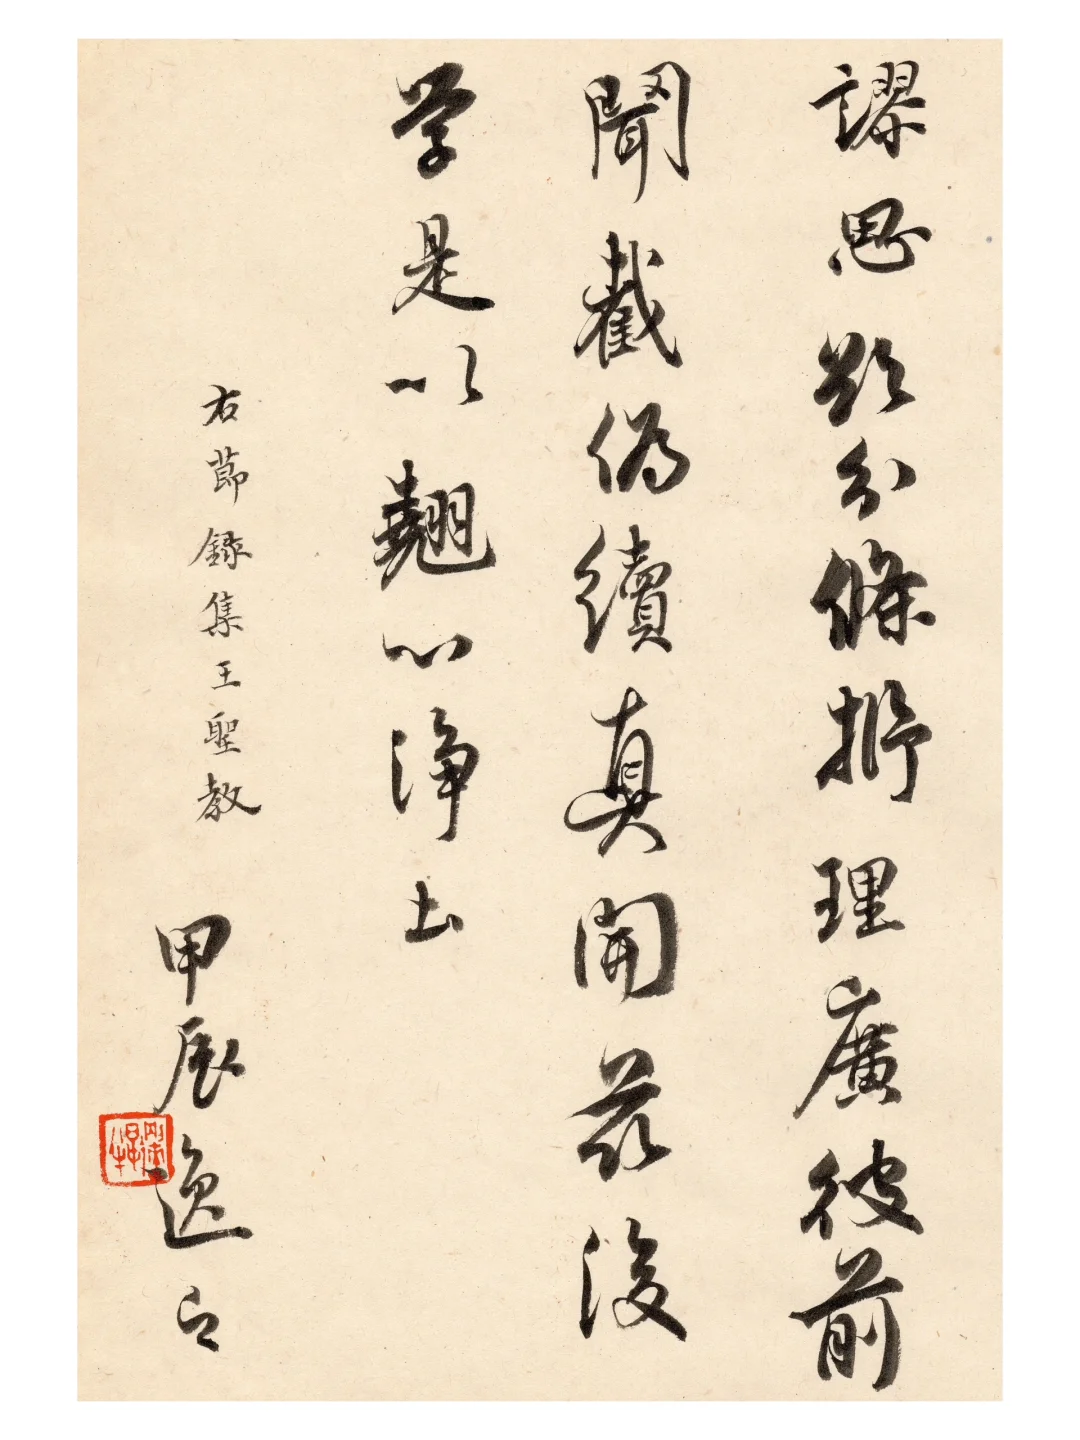 謬思欲分條揤理廣彼前
聞截偽續真開茲後
学是以翹心淨土
右節錄集王聖教
甲辰逸之